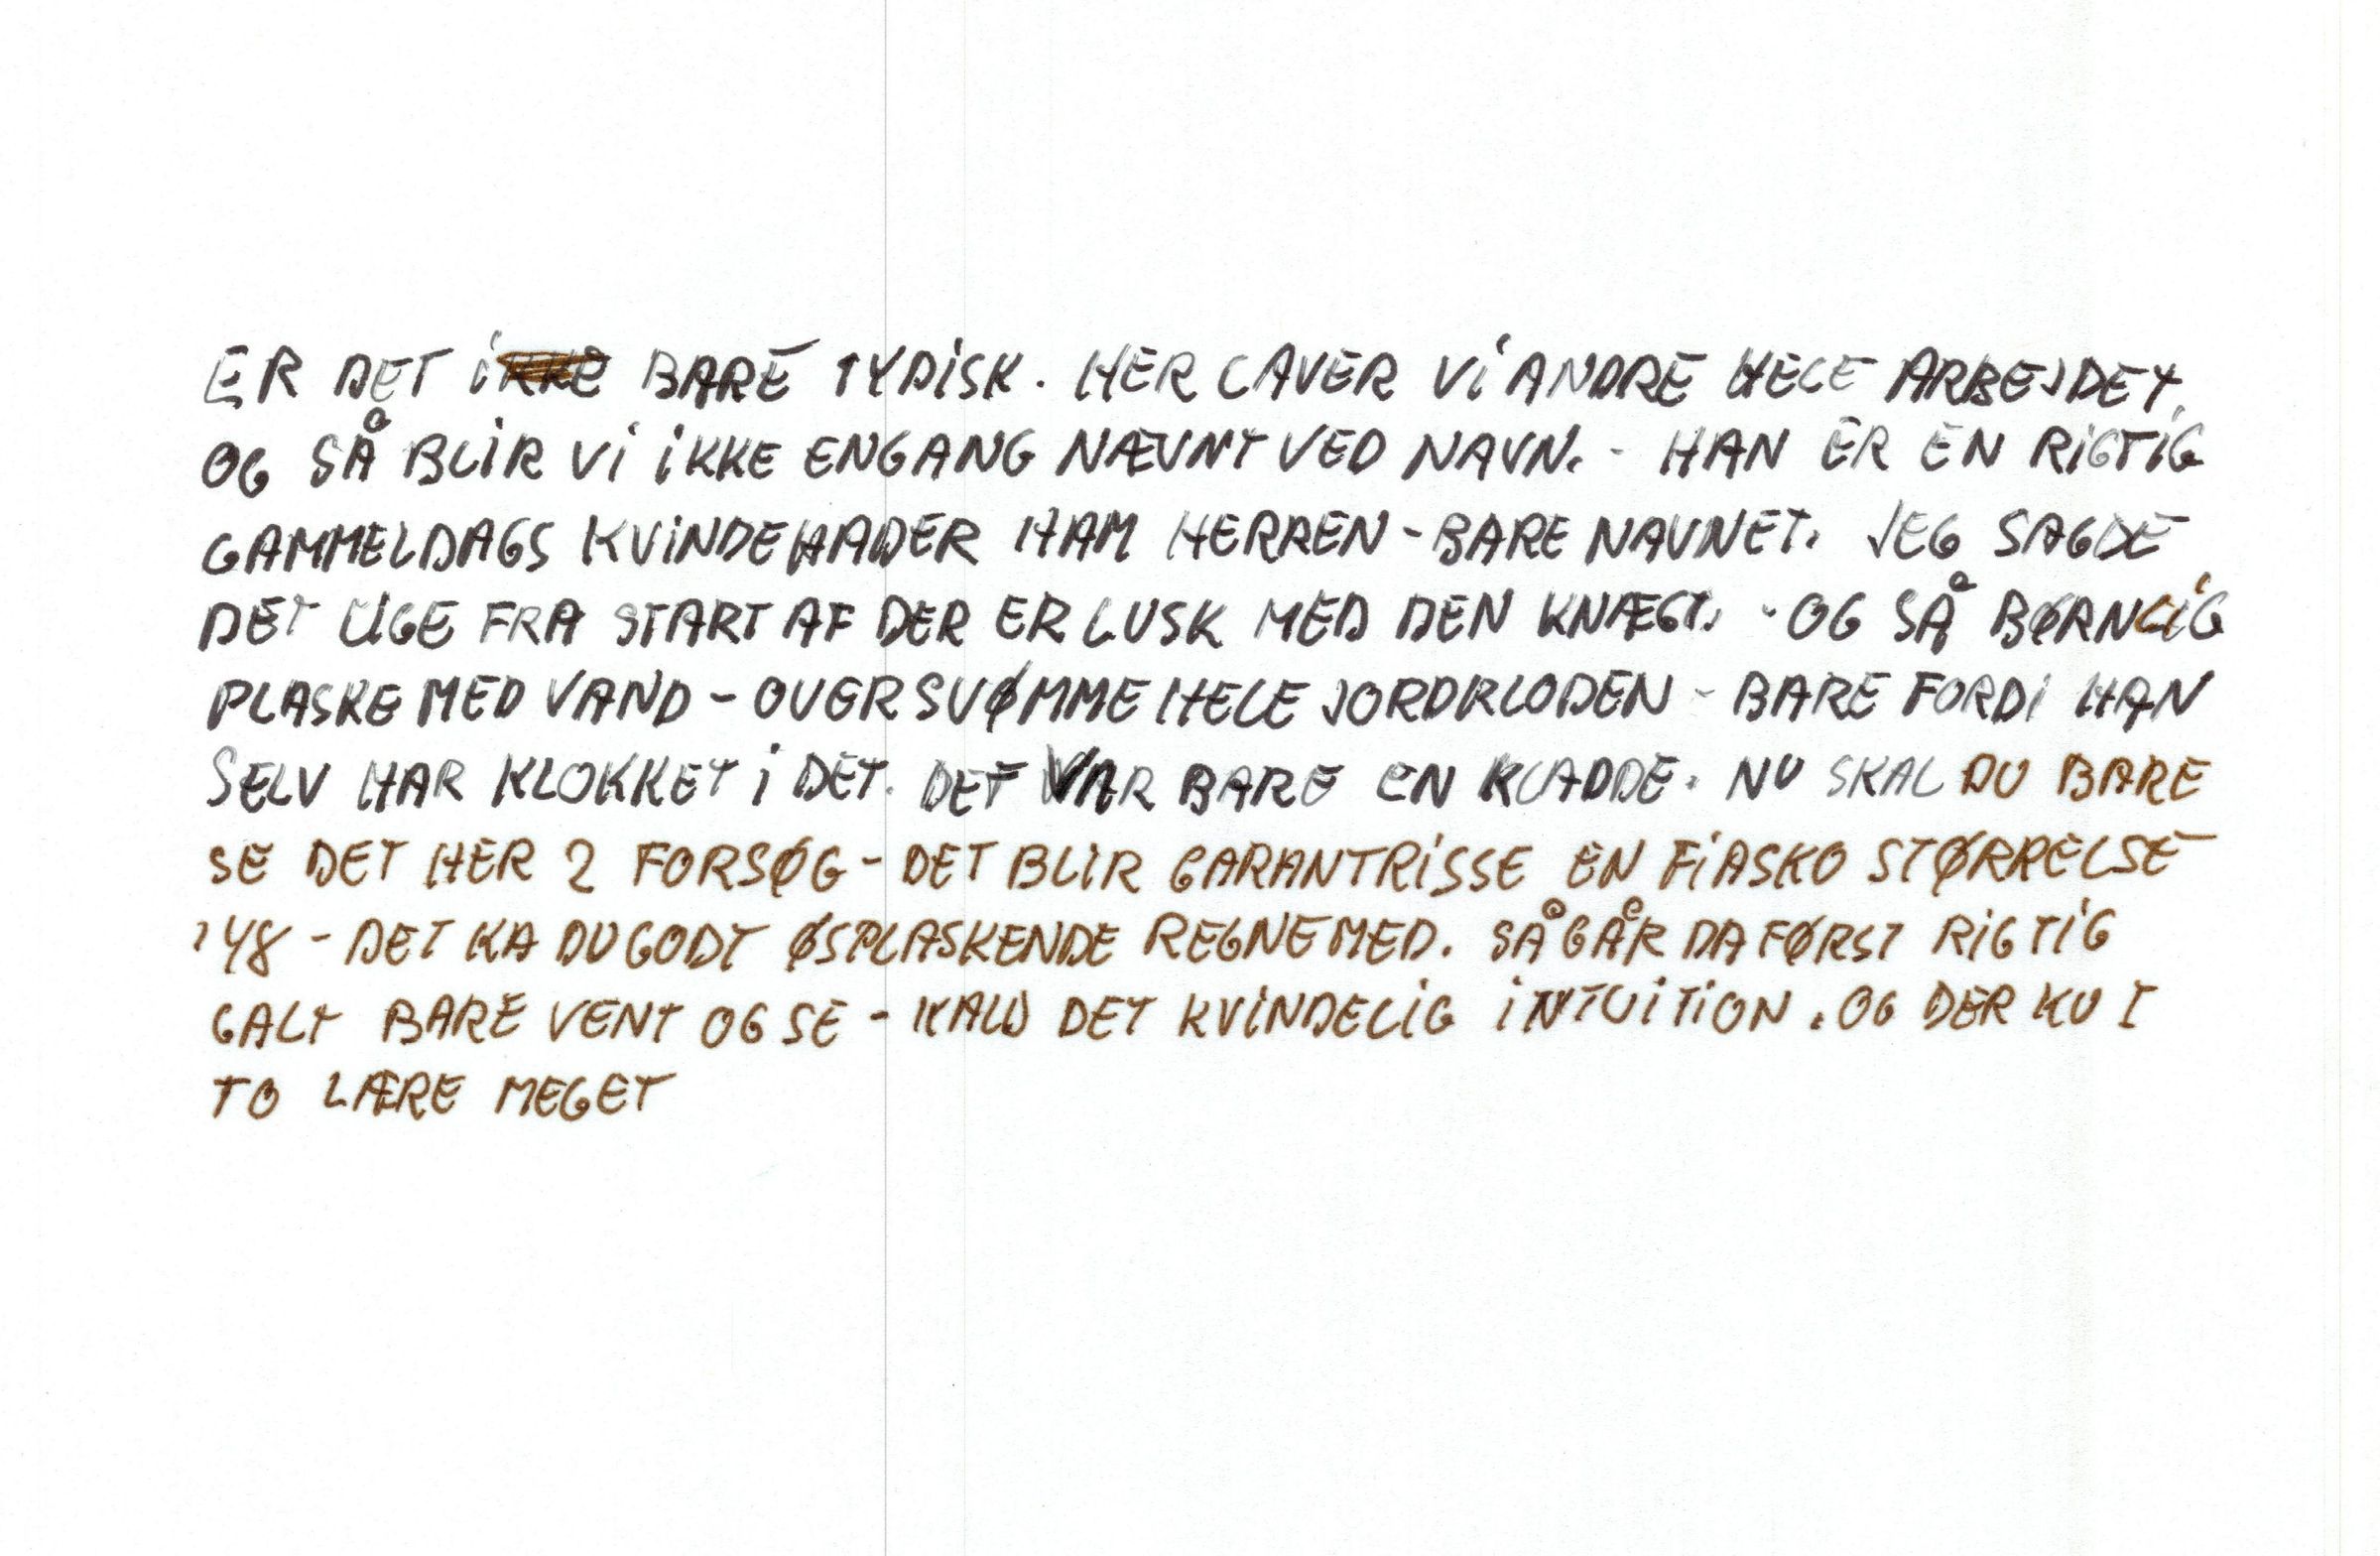 ER DET IKKE BARE TYDISK. HER LAVER VI ANDRE HELE ARBEJDET,
OG SÅ BLIR VI IKKE ENGANG NÆVNT VED NAVN. - HAN ER EN RIGTIG
GAMMELDAGS KVINDEHADER HAM HERREN - BARE NAVNET. JEG SAGDE
DET LIGE FRA START AF DER ER LUSK MED DEN KNÆGT. - OG SÅ BØRNLIG
PLASKE MED VAND - OVERSVØMME HELE JORDKLODEN - BARE FORDI HAN
SELV HAR KLOKKET I DET. DET VAR BARE EN KLADDE. NU SKAL DU BARE
SE DET HER 2 FORSØG - DET BLIR GARANTRISSE EN FIASKO STØRRELSE
148 - DET KA DU GODT ØSPLASKENDE REGNE MED. SÅ GÅR DA FØRST RIGTIG
GALT BARE VENT OG SE - KALD DET KVINDELIG INTUITION. OG DER KU I
TO LÆRE MEGET